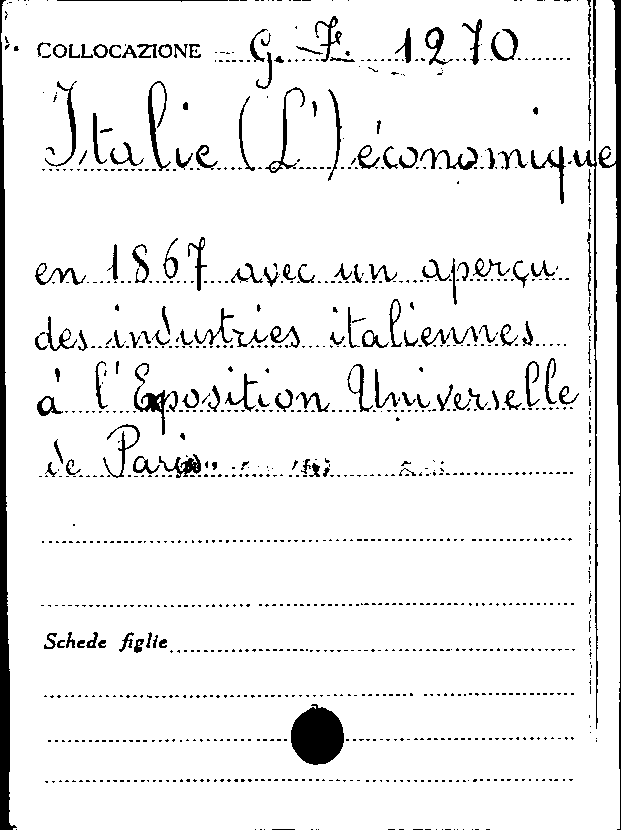 COLLOCAZIONE G. F. 1270
Italie (L') économique
en 1867 avec un aperçu
des industries italiennes
à l'Exposition Universelle
de Paris
Schede figlie